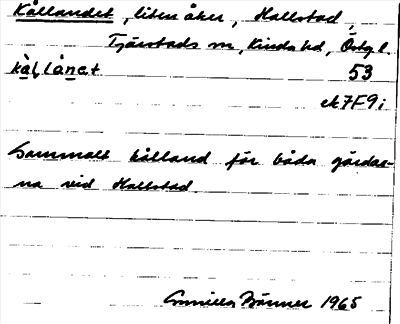 Kållandet, liten åker, Hallstad,
Tjärstads sn, Kinda hd, Östg l.
kålla̱nat 53
ek7F9i
Gammalt kålland för båda gårdar-
na vid Hallstad.
Gunilla Bänner 1965